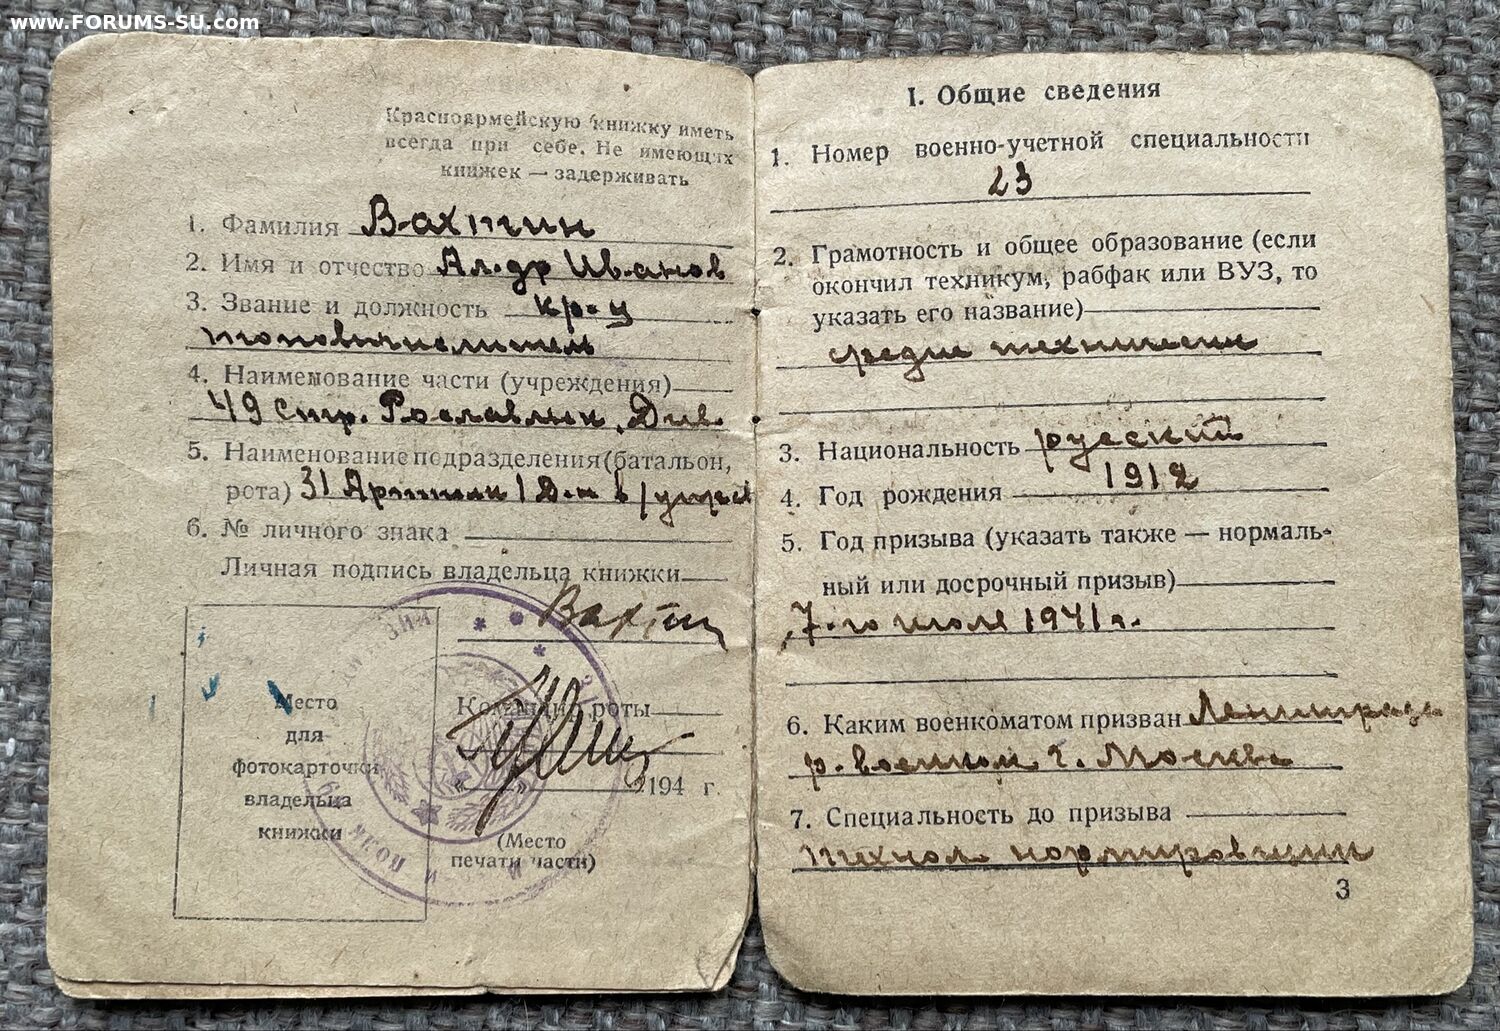 www.FORUMS-SU.com
Красноармейскую книжку иметь
всегда при себе. Не имеющих
книжек — задерживать
1. Фамилия Вахтин
2. Имя и отчество Ал-др Иванов
3. Звание и должность кр-ц
топовычислитель
4. Наименование части (учреждения)
49 Стр. Рославльск. Див.
5. Наименование подразделения (батальон,
рота) 31 Артполк 1 Д-н
6. № личного знака
Личная подпись владельца книжки
Вахтин
Место
для
фотокарточки
владельца
книжки
Командир роты
« » 194 г.
(Место
печати части)
I. Общие сведения
1. Номер военно-учетной специальности
23
2. Грамотность и общее образование (если
окончил техникум, рабфак или ВУЗ, то
указать его название)
средне технический
3. Национальность русский
4. Год рождения 1912
5. Год призыва (указать также — нормаль-
ный или досрочный призыв)
7-го июля 1941 г.
6. Каким военкоматом призван Ленинград
р. военком г. Москвы
7. Специальность до призыва
технол. нормировщик
3